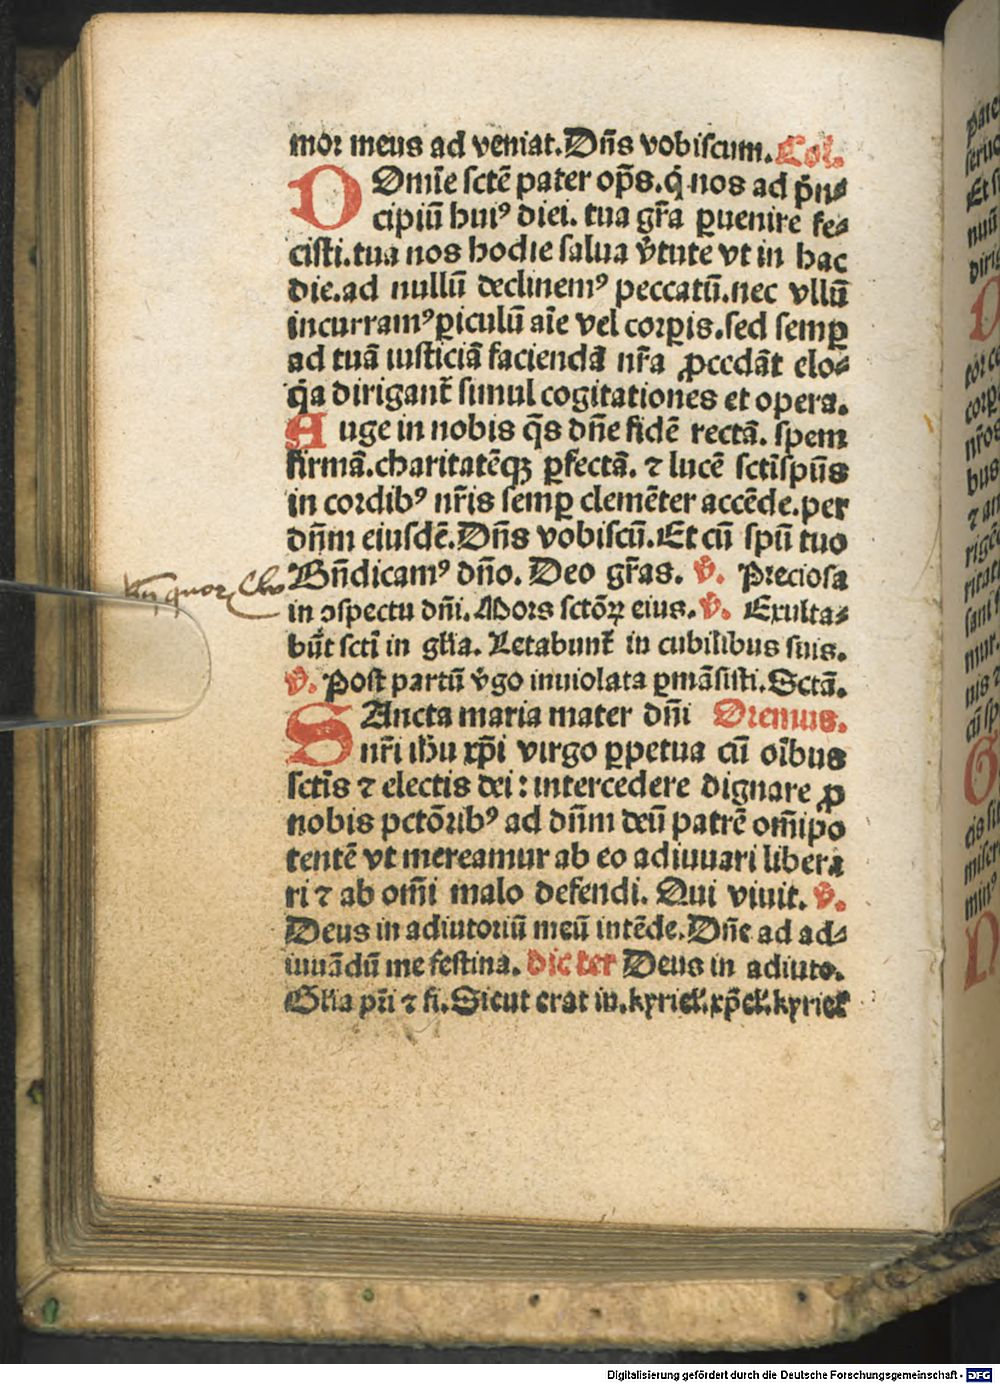 mor meus ad veniat. Dñs vobiscum. Col.
DOmīe sctē pater ops̄. q̇ nos ad pͥn⸗
cipiū huiꝰ diei. tua gr̄a ꝑuenire fe⸗
cisti. tua nos hodie salua v̇tute vt in hac
die. ad nullū declinemꝰ peccatū. nec vllū
incurramꝰ ꝑiculū aīe vel corꝑis. sed semꝑ
ad tuā iusticiā faciendā nr̄a ꝓcedāt elo⸗
q̇a dirigant᷑ simul cogitationes et opera.
Auge in nobis q̄s dn̄e fidē rectā. spem
firmā. charitatēqꝫ ꝑfectā. ⁊ lucē sctīspūs
in cordibꝰ nr̄is semꝑ clemēter accēde. per
dn̄m eiusdē. Dn̄s vobiscū. Et cū spū tuo
Bn̄dicamꝰ dn̄o. Deo gr̄as. ꝟ. Preciosa
in ꝯspectu dn̄i. Mors sctōꝝ eius. ꝟ. Exulta⸗
būt sctī in gl̄ia. Letabunt᷑ in cubilibus suis.
ꝟ. Post partū v̇go inuiolata ꝑmāsisti. Sctā.
SAncta maria mater dn̄i Oremus.
nr̄i ihū xp̄i virgo ꝑpetua cū oībus
sctīs ⁊ electis dei: intercedere dignare ꝓ
nobis pctōribꝰ ad dn̄m deū patrē om̄ipo
tentē vt mereamur ab eo adiuuari libera
ri ⁊ ab om̄i malo defendi. Qui viuit. ꝟ.
Deus in adiutoriū meū intēde. Dn̄e ad ad⸗
iuuādū me festina. dic ter Deus in adiuto.
Gl̄ia pr̄i ⁊ fi. Sicut erat in. kyriel̄. xp̄el̄. kyriel̄
Digitalisierung gefördert durch die Deutsche Forschungsgemeinschaft - DFG